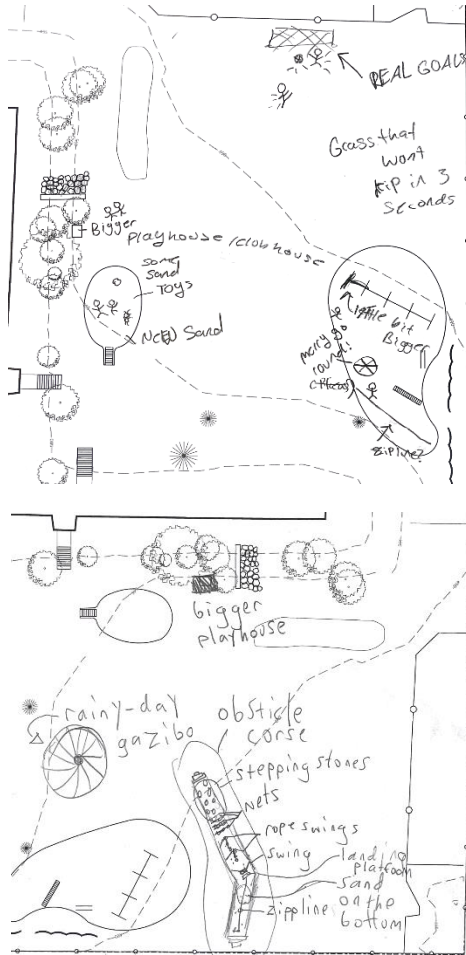 REAL GOALS
Grass that
wont
rip in 3
seconds
Bigger
playhouse /clubhouse
some
sand
Toys
NEW Sand
little bit
Bigger
merry go
round!
zipline?
bigger
playhouse
rainy-day
gazibo
obsticle
corse
stepping stones
nets
rope swings
swing
landing
platform
sand
on the
bottom
zippline